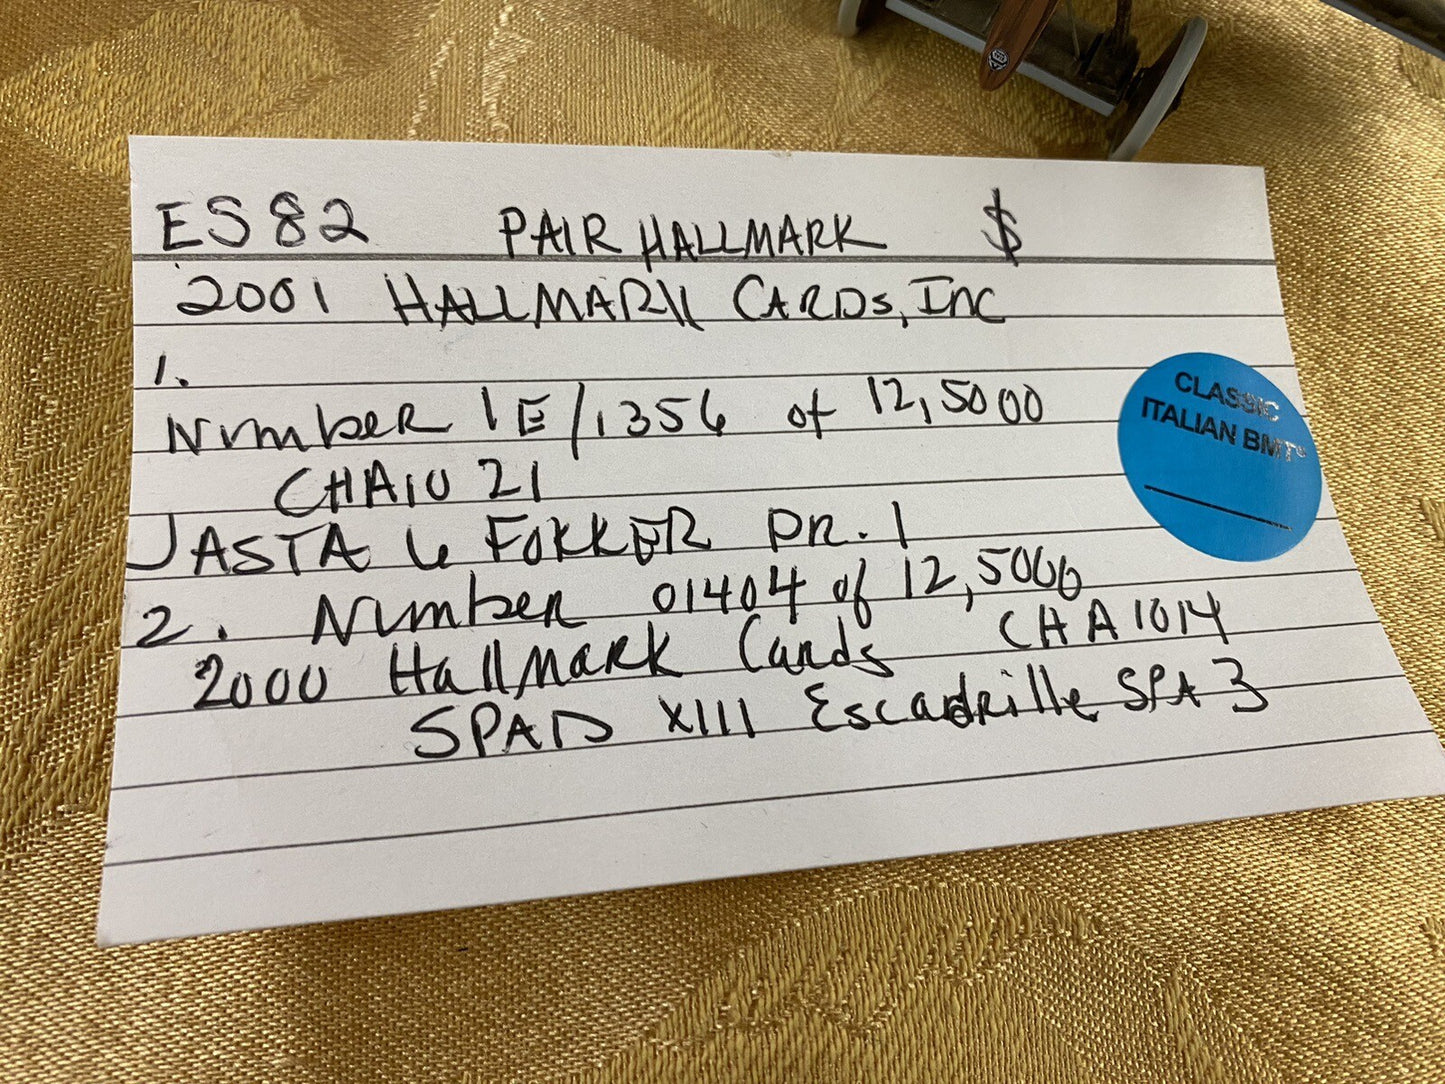 ES 82 PAIR HALLMARK $
2001 HALLMARK CARDS, Inc
1.
Number 1E/1356 of 12,5000
CHA10 21
JASTA 6 FOKKER DR. 1
2. Number 01404 of 12,5000
2000 HallMARK Cards CHA 1014
SPAD XIII Escadrille SPA 3
CLASSIC
ITALIAN BMT®